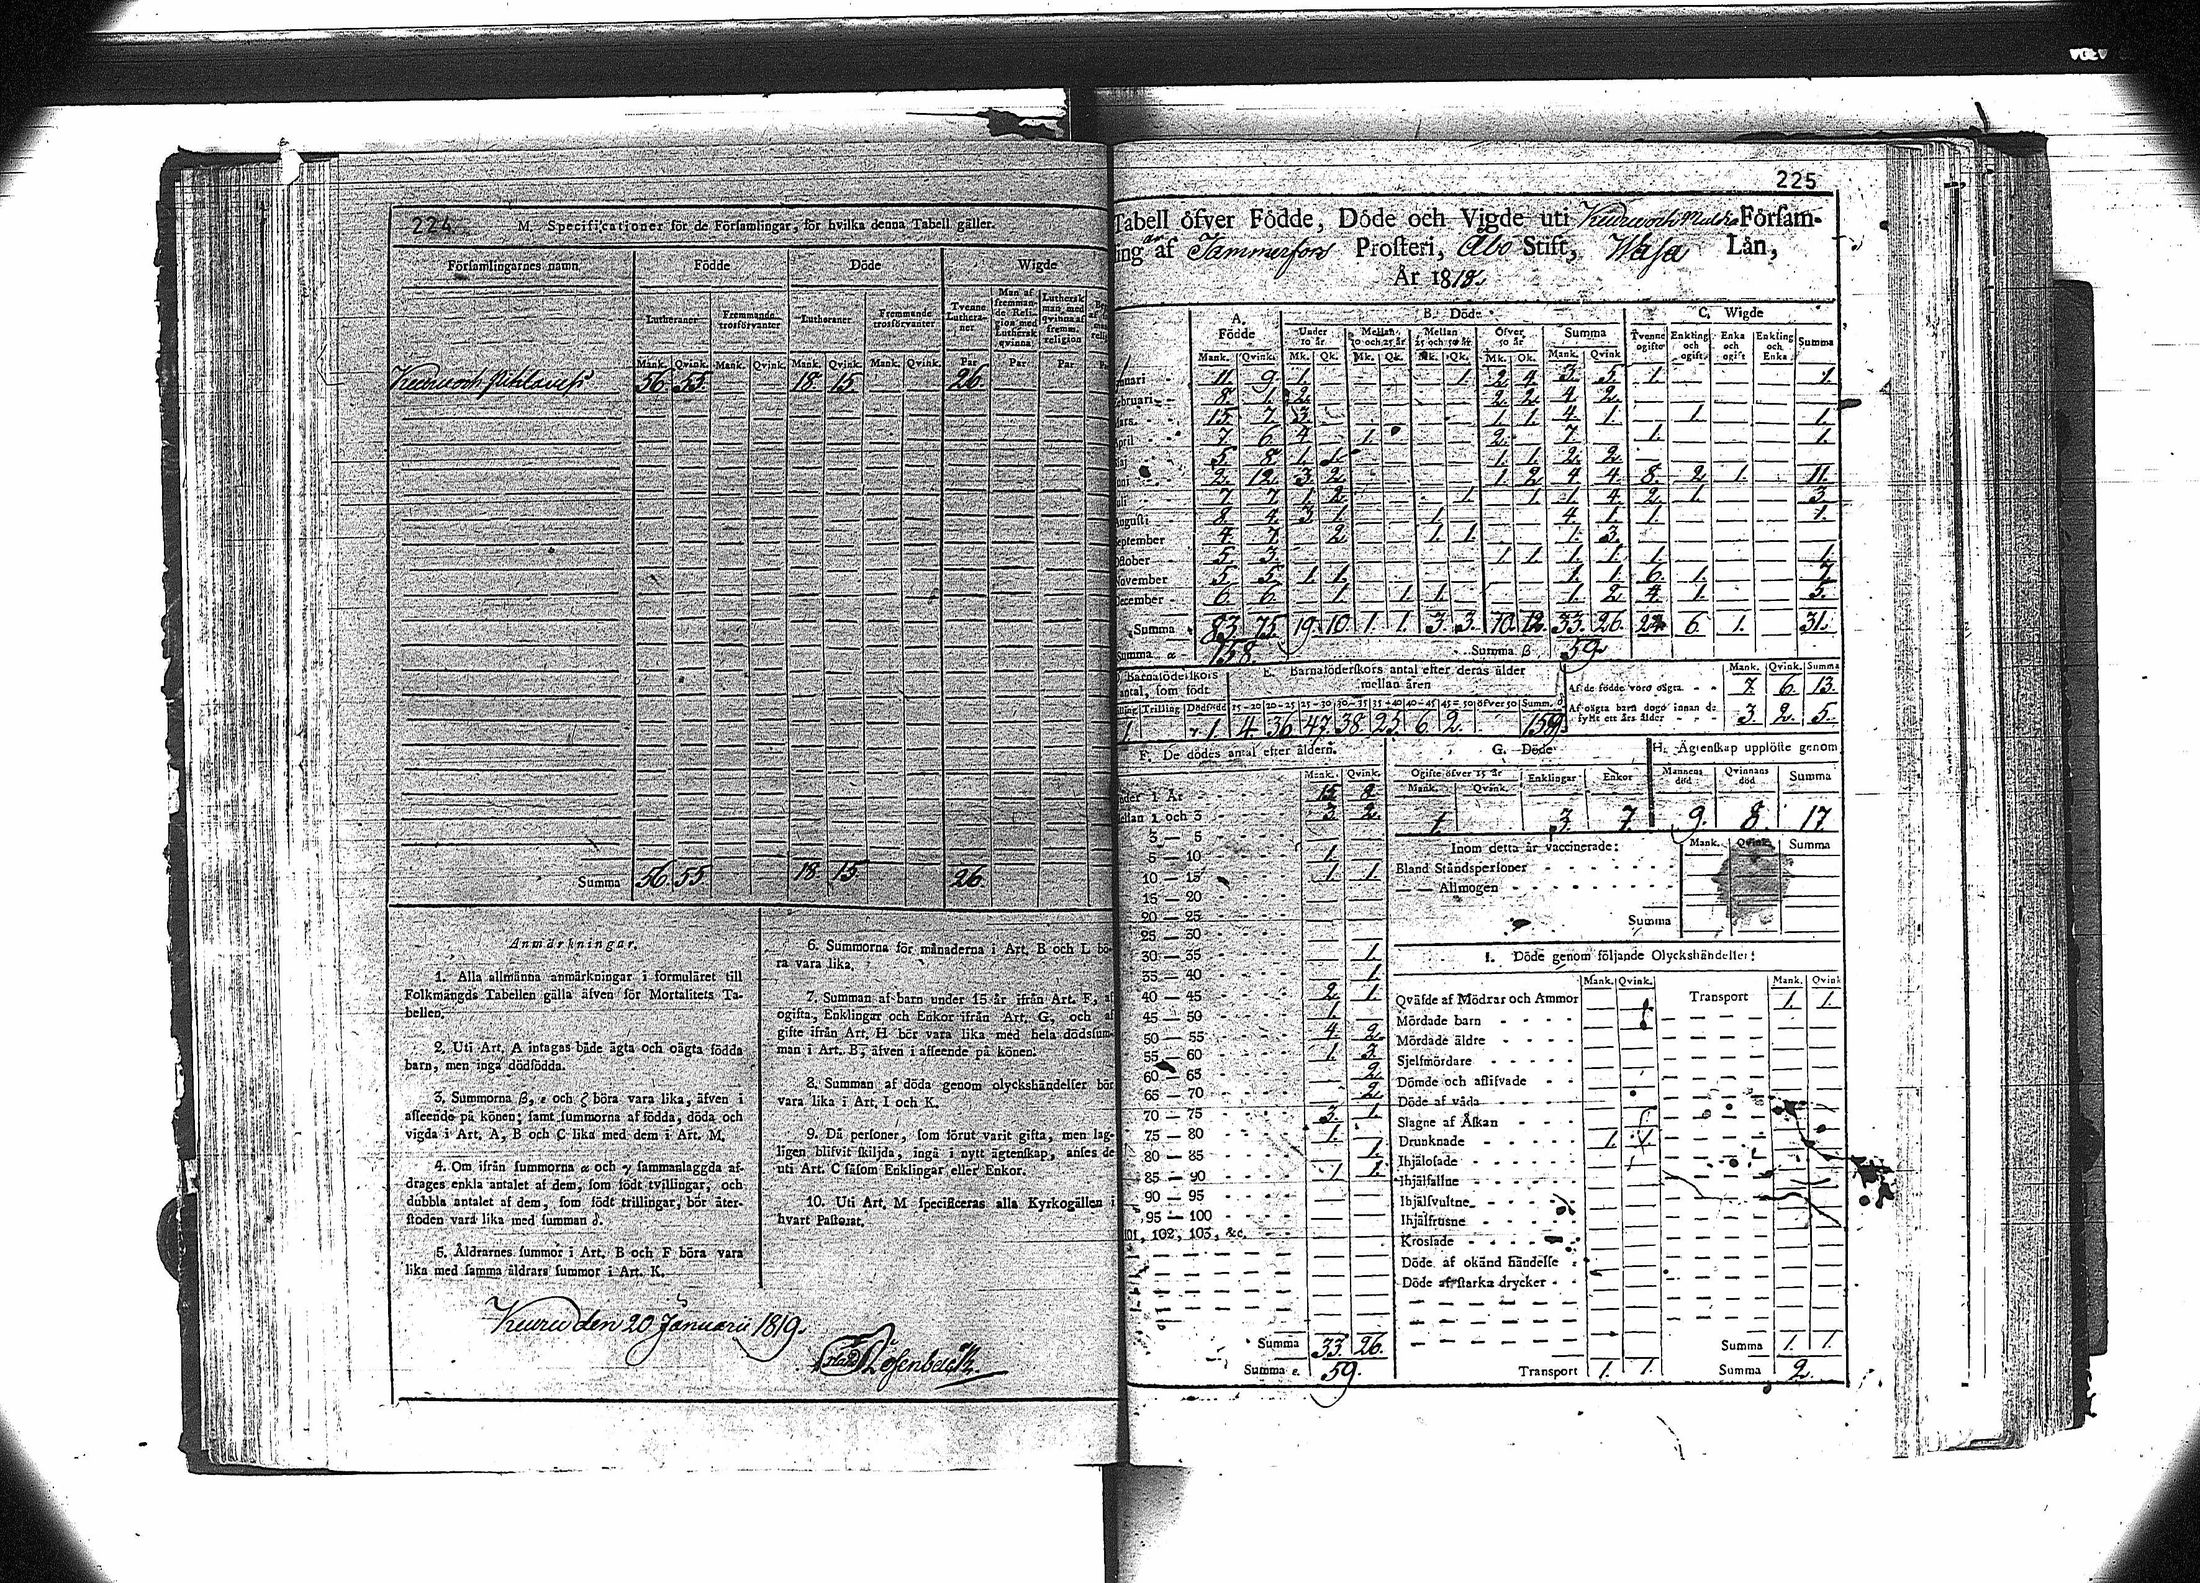 224
M. Specificationer för de Församlingar, för hvilka denna Tabell gäller.
Församlingarnes namn
Födde
Döde
Wigde
Lutheraner
Fremmande trosförvanter
Lutheraner
Fremmande trosförvanter
Tvenne Lutheraner
Man af fremmande Religion med Luthersk qvinna
Luthersk man med qvinna af fremm. religion
Mank. Qvink. Mank. Qvink. Mank. Qvink. Mank. Qvink. Par Par Par
Keuru och 56. 55. 18. 15. 26.
Summa 56. 55. 18. 15. 26.
Anmärkningar.
1. Alla allmänna anmärkningar i formuläret till
Folkmängds Tabellen gälla äfven för Mortalitets Ta-
bellen.
2. Uti Art. A intagas både ägta och oägta födda
barn, men inga dödfödda.
3. Summorna β, ε och ζ böra vara lika, äfven i
afseende på könen; samt summorna af födda, döda och
vigda i Art. A, B och C lika med dem i Art. M.
4. Om ifrån summorna α och γ sammanlaggda af-
drages enkla antalet af dem, som födt tvillingar, och
dubbla antalet af dem, som födt trillingar, bör åter-
stoden vara lika med summan δ.
5. Åldrarnes summor i Art. B och F böra vara
lika med samma åldrars summor i Art. K.
6. Summorna för månaderna i Art. B och L bö-
ra vara lika.
7. Summan af barn under 15 år ifrån Art. F, af
ogifta, Enklingar och Enkor ifrån Art. G, och af
gifte ifrån Art. H bör vara lika med hela dödsum-
man i Art. B, äfven i afseende på könen.
8. Summan af döda genom olyckshändelser bör
vara lika i Art. I och K.
9. Då personer, som förut varit gifta, men lag-
ligen blifvit skiljda, ingå i nytt ägtenskap, anses de
uti Art. C såsom Enklingar eller Enkor.
10. Uti Art. M specificeras alla Kyrkogällen i
hvart Pastorat.
Keuru den 20 Januarii 1819.
Rosenback
225
Tabell öfver Födde, Döde och Vigde uti Keuru och Församling
af Tammerfors Prosteri, Åbo Stift, Wasa Län,
År 1818.
A. Födde
B. Döde
C. Wigde
Under 10 år
Mellan 10 och 25 år
Mellan 25 och 50 år
Öfver 50 år
Summa
Tvenne ogifte
Enkling och ogift
Enka och ogift
Enkling och Enka
Summa
Mank. Qvink. Mk. Qk. Mk. Qk. Mk. Qk. Mk. Qk. Mank. Qvink
Januari 11. 9. 1. 1. 2. 4. 3. 5. 1. 1.
Februari 8. 1. 2. 2. 2. 4. 2.
Mars 15. 7. 3. 1. 1. 4. 1. 1. 1.
April 7. 6. 4. 1. 2. 7. 1. 1.
Maj 5. 8. 1. 1. 1. 1. 2. 2.
Juni 2. 12. 3. 2. 1. 2. 4. 4. 8. 2. 1. 11.
Juli 7. 7. 1. 2. 1. 1. 1. 4. 2. 1. 3.
Augusti 8. 4. 3. 1. 1. 4. 1. 1. 1.
September 4. 7. 2. 1. 1. 1. 3.
October 5. 3. 1. 1. 1. 1. 1. 1.
November 5. 5. 1. 1. 1. 1. 6. 1. 7.
December 6. 6. 1. 1. 1. 1. 2. 4. 1. 5.
Summa 83. 75. 19. 10. 1. 1. 3. 3. 10. 12. 33. 26. 24. 6. 1. 31.
Summa α 158. Summa β 59.
D. Barnaföderskors antal, som födt
E. Barnaföderskors antal efter deras ålder mellan åren
Trilling Dödfödde 15-20 20-25 25-30 30-35 35-40 40-45 45-50 öfver 50 Summ. δ
1. 1. 4. 36. 47. 38. 25. 6. 2. 158.
Mank. Qvink. Summa
Af de födde voro oägta 7. 6. 13.
Af oägta barn dogo innan de fyllt ett års ålder 3. 2. 5.
F. De dödes antal efter åldern.
Mank. Qvink.
Under 1 År 15. 8.
Mellan 1 och 3 3. 2.
3 — 5
5 — 10 1.
10 — 15 1. 1.
15 — 20
20 — 25
25 — 30
30 — 35 1.
35 — 40 1.
40 — 45 2. 1.
45 — 50 1.
50 — 55 4. 2.
55 — 60 1. 3.
60 — 65 2.
65 — 70 2.
70 — 75 3. 1.
75 — 80 1.
80 — 85 1.
85 — 90 1. 1.
90 — 95
95 — 100
101, 102, 103, &c.
Summa 33. 26.
Summa ε. 59.
G. Döde
Ogifte öfver 15 år Enklingar Enkor
Mank. Qvink.
1. 3. 7.
H. Ägtenskap upplöste genom
Mannens död Qvinnans död Summa
9. 8. 17.
Inom detta år vaccinerade: Mank. Qvink. Summa
Bland Ståndspersoner
— — Allmogen
Summa
I. Döde genom följande Olyckshändelser:
Mank. Qvink. Mank. Qvink
Qväfde af Mödrar och Ammor Transport 1. 1.
Mördade barn
Mördade äldre
Sjelfmördare
Dömde och aflifvade
Döde af våda
Slagne af Åskan
Drunknade 1. 1.
Ihjälosade
Ihjälfallne
Ihjälsvultne
Ihjälfrusne
Krossade
Döde af okänd händelse
Döde af starka drycker
Summa 1. 1.
Transport 1. 1. Summa 2.